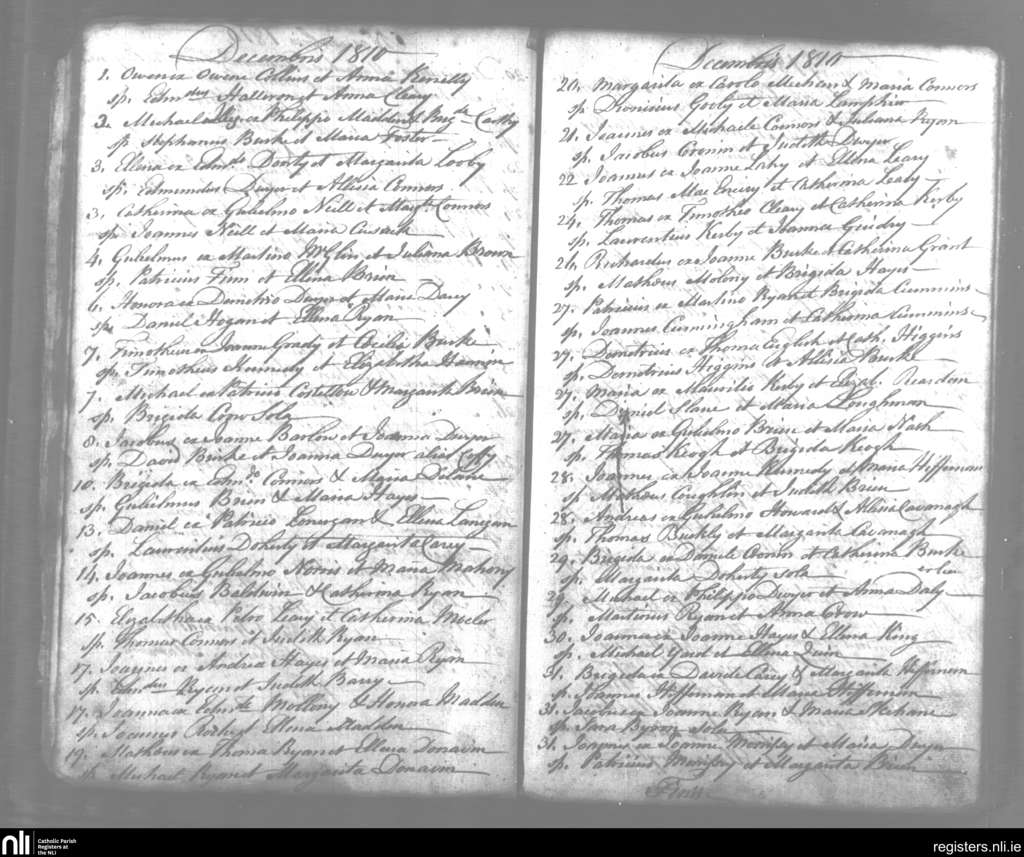 Decembris 1810
1. Owen ex Owene Collins et Anna Kenelly
sp. Edmdus Halleron et Anna Cleary
3. Michael ex Philippo Madden & Mgte Carthy
sp Stephanus Burke et Maria Foster
3. Ellena ex Edmdo Doorty et Margarita Looby
sp. Edmundus Dwyer et Allisia Connors
3. Catherina ex Gulielmo Neill et Margt Connors
sp Joannes Neill et Maria Cusack
4. Gulielmus ex Martino McGlin et Juliana Brown
sp. Patricius Finn et Ellena Brien
6. Honora ex Demetrio Dwyer et Maria Darcy
sp. Daniel Hogan et Ellena Ryan
7. Timotheus ex Joanne Grady et Cecilia Burke
sp. Timotheus Kennedy et Elizabetha
7. Michael ex Patricio Costellow & Margarita Brien
sp. Brigida Crow Sola
8. Jacobus ex Joanne Barlow et Joanna Dwyer
sp. David Burke et Joanna Dwyer alias
10. Brigida ex Edmdo Connors & Maria Delane
sp. Gulielmus Brien & Maria Hayes
13. Daniel ex Patricio Lonergan & Ellena Lanigan
sp. Laurentius Doherty et Margarita Carey
14. Joannes ex Gulielmo Norris et Maria Mahony
sp. Jacobus Baldwin & Catherina Ryan
15. Elizabetha ex Petro Leary et Catherina
sp. Thomas Connors et Judith Ryan
17. Joannes ex Andrea Hayes et Maria Ryan
sp. Edmdus Ryan et Judith Barry
17. Joanna ex Edmdo Mollony & Honora Madden
sp. Joannes et Ellena Madden
19. Matheus ex Thoma Ryan et Ellena Donavin
sp. Michael Ryan et Margarita Donavin
Decembris 1810
20. Margarita ex Carolo Meehan & Maria Connors
sp Dionisius Gooly et Maria Lamphier
21. Joannes ex Michaele Connors & Juliana Ryan
sp. Jacobus Cronin et Judith Dwyer
22 Joannes ex Joanne Lahy et Ellena Leary
sp. Thomas Mac Enery et Catherina Leahy
24. Thomas ex Timotheo Cleary et Catherina Kerby
sp. Laurentius Kerby et Joanna Guidry
26. Richardus ex Joanne Burke et Catherina Grant
sp. Matheus Molony et Brigida Hayes
27. Patricius ex Martino Ryan et Brigida Cummins
sp. Joannes Cunningham et Catherina Cummins
27. Demetrius ex Thoma English et Cath. Higgins
sp. Demetrius Higgins et Allisia Burke
27. Maria ex Mauritio Kerby et Elizab. Reardon
sp. Daniel Slane et Maria Loughman
27. Maria ex Gulielmo Brien et Maria Nash
sp. Thomas Keogh et Brigida Keogh
28. Joannes ex Joanne Kennedy et Maria Heffernan
sp Matheus Coughlin et Judith Brien
28. Andreas ex Gulielmo Howard & Allisia Cavanagh
sp. Thomas Buckly et Margarita Cavanagh
29. Brigida ex Daniele Cronin et Catherina Burke
sp. Margarita Doherty sola
29. Michael ex Philippo Dwyer et Anna Daly
sp. Martinus Ryan et Anna Crow
30. Joanna ex Joanne Hayes & Ellena King
sp. Michael et Ellena Quin
31. Brigida ex Davide Carey & Margarita Heffernan
sp. Joannes Heffernan et Maria Heffernan
31. Jacobus ex Joanne Ryan & Maria
sp. Sara Byrne Sola
31. Joannes ex Joanne Morrissy et Maria Dwyer
sp. Patricius Morrissy et Margarita Brien
Finis
nli Catholic Parish Registers at the NLI
registers.nli.ie